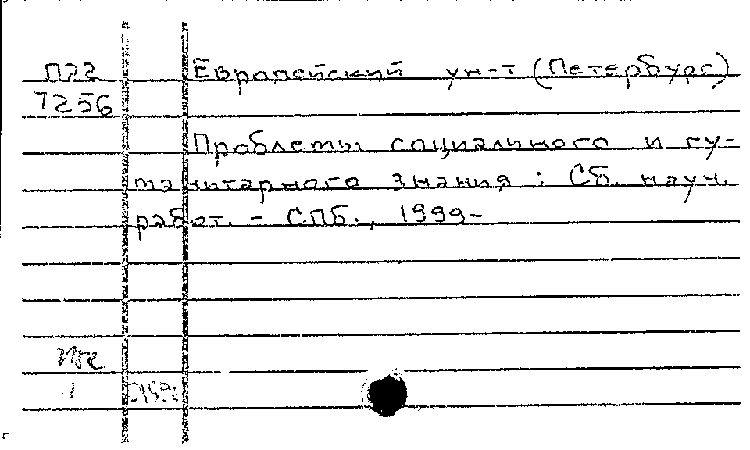 П22 Европейский ун-т (Петербург)
7256
Проблемы социального и гу-
манитарного знания : Сб. науч.
работ. - СПб., 1999-